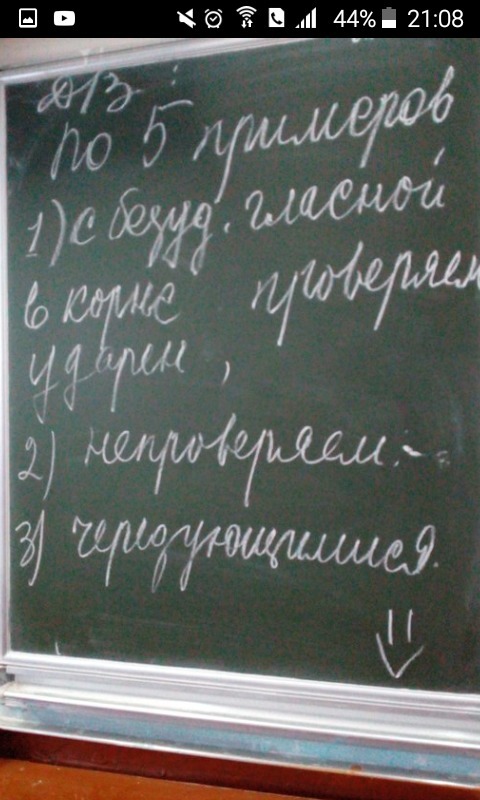 44% 21:08
Д/З:
по 5 примеров
1) с безуд. гласной
в корне проверяем
ударен,
2) непроверяем.
3) чередующимися.